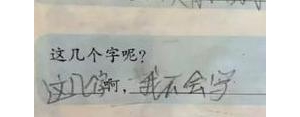 这几个字呢?
这几字啊，我不会写